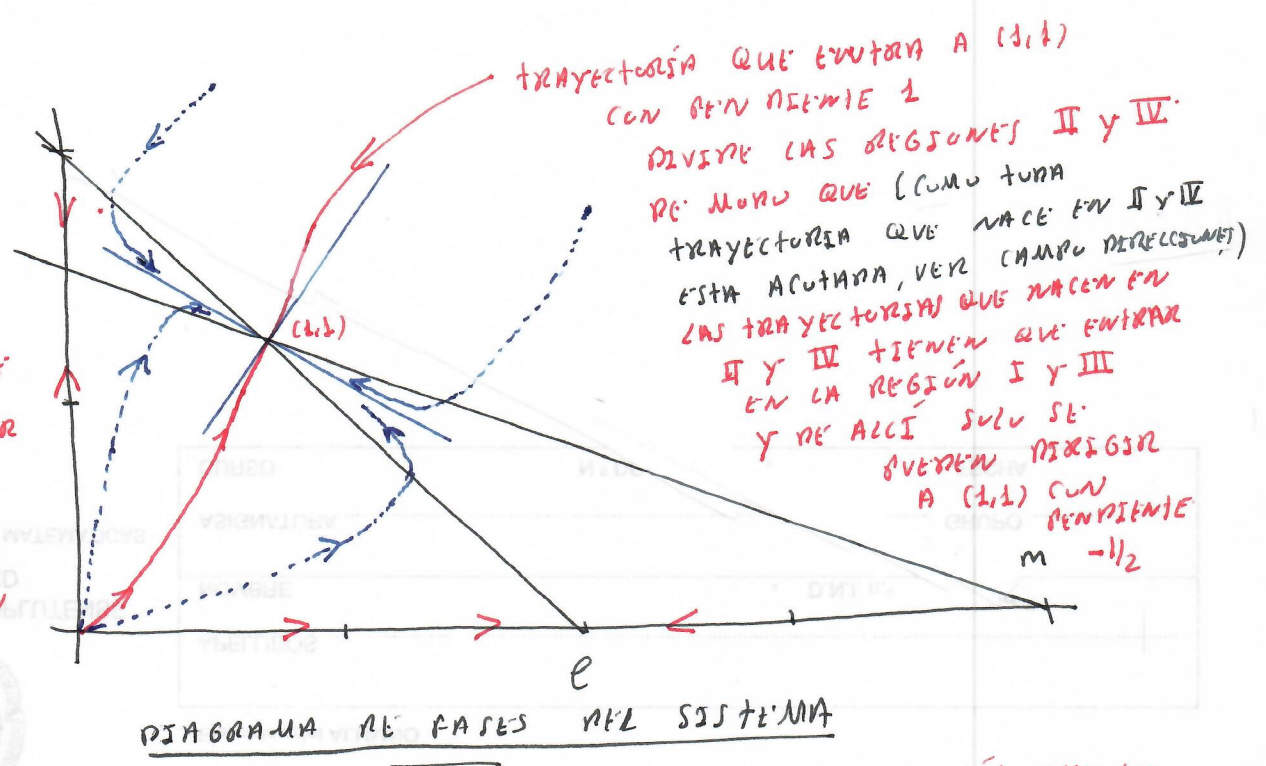 TRAYECTORIA QUE ENTRA A (1,1)
CON PENDIENTE 1
DIVIDE LAS REGIONES II y IV
DE MODO QUE (COMO TODA
TRAYECTORIA QUE NACE EN II y IV
ESTA ACOTADA, VER CAMPO DIRECCIONES)
LAS TRAYECTORIAS QUE NACEN EN
II y IV TIENEN QUE ENTRAR
EN LA REGIÓN I y III
Y DE ALLÍ SOLO SE
PUEDEN DIRIGIR
A (1,1) CON
PENDIENTE
-1/2
(1,1)
m
e
DIAGRAMA DE FASES DEL SISTEMA
CURSO
ASIGNATURA
GRUPO
NOMBRE
D.N.I.
APELLIDOS